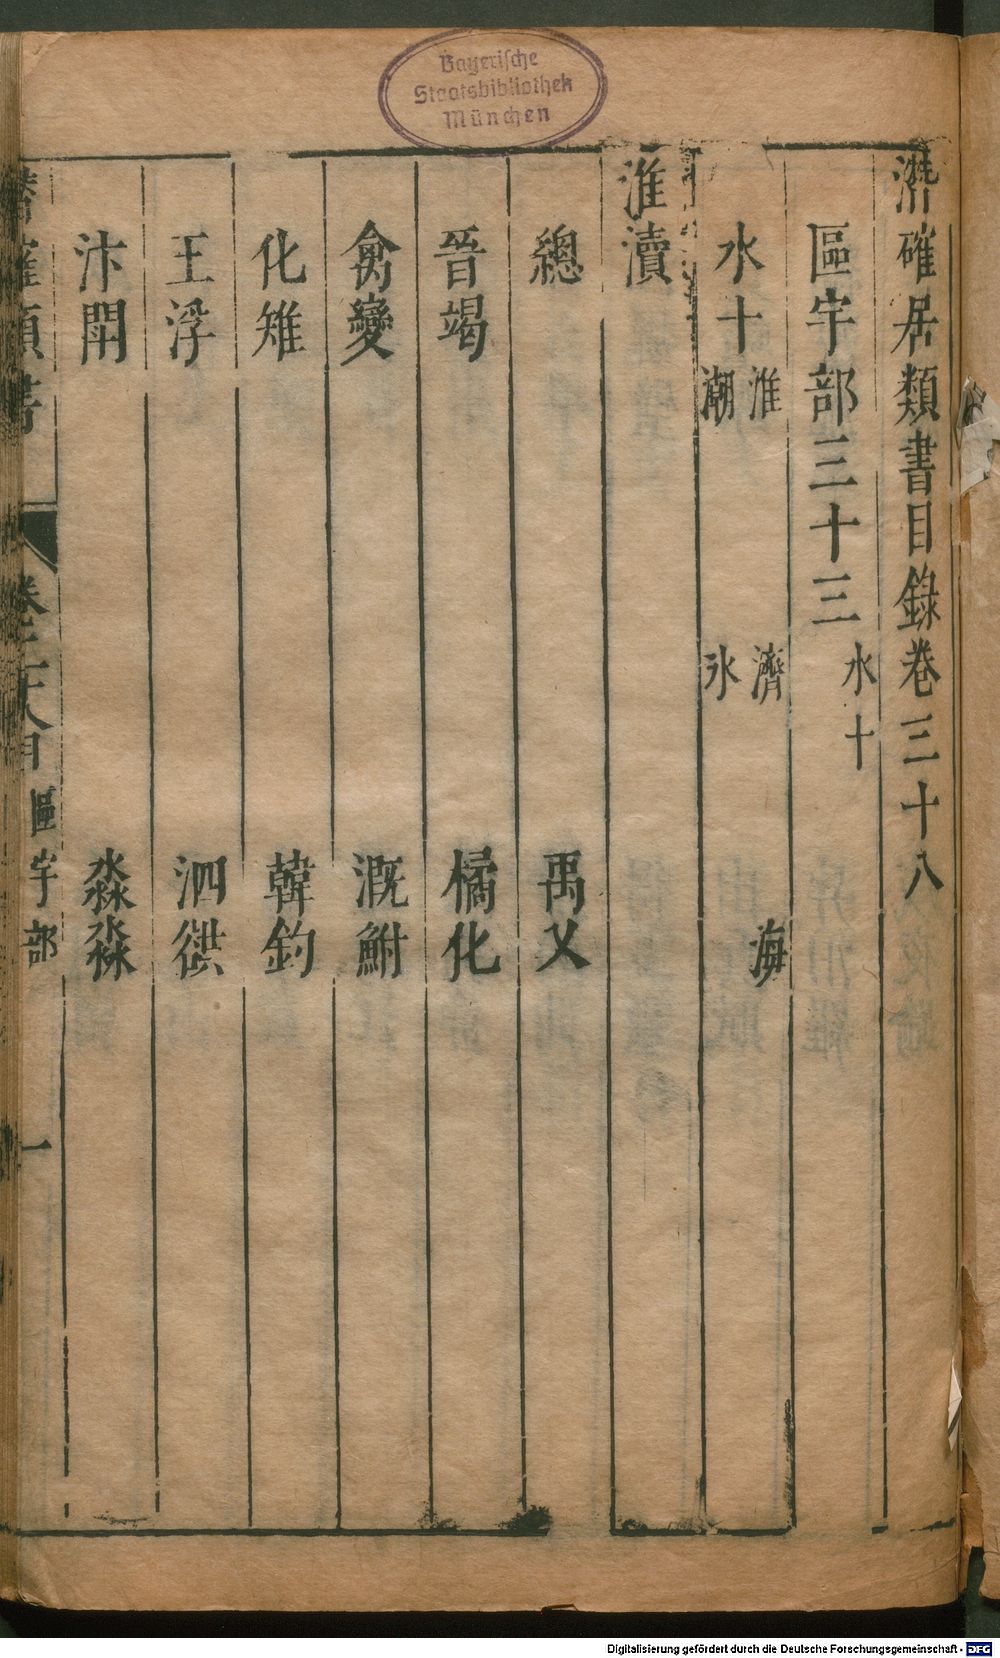 Bayerische
Staatsbibliothek
München
潛確居類書目錄卷三十八
區宇部三十三 水十
水十 淮 濟 海
潮 氷
淮瀆
總 禹乂
晉竭 橘化
禽變 溉鮒
化雉 韓釣
王浮 泗
汴閈 淼淼
潛確類書 卷三十八目 區宇部 一
Digitalisierung gefördert durch die Deutsche Forschungsgemeinschaft - DFG